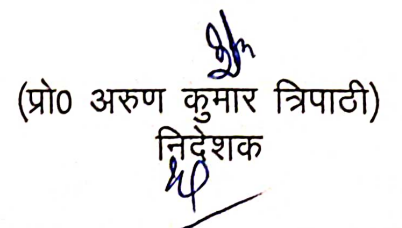 (प्रो0 अरुण कुमार त्रिपाठी)
निदेशक